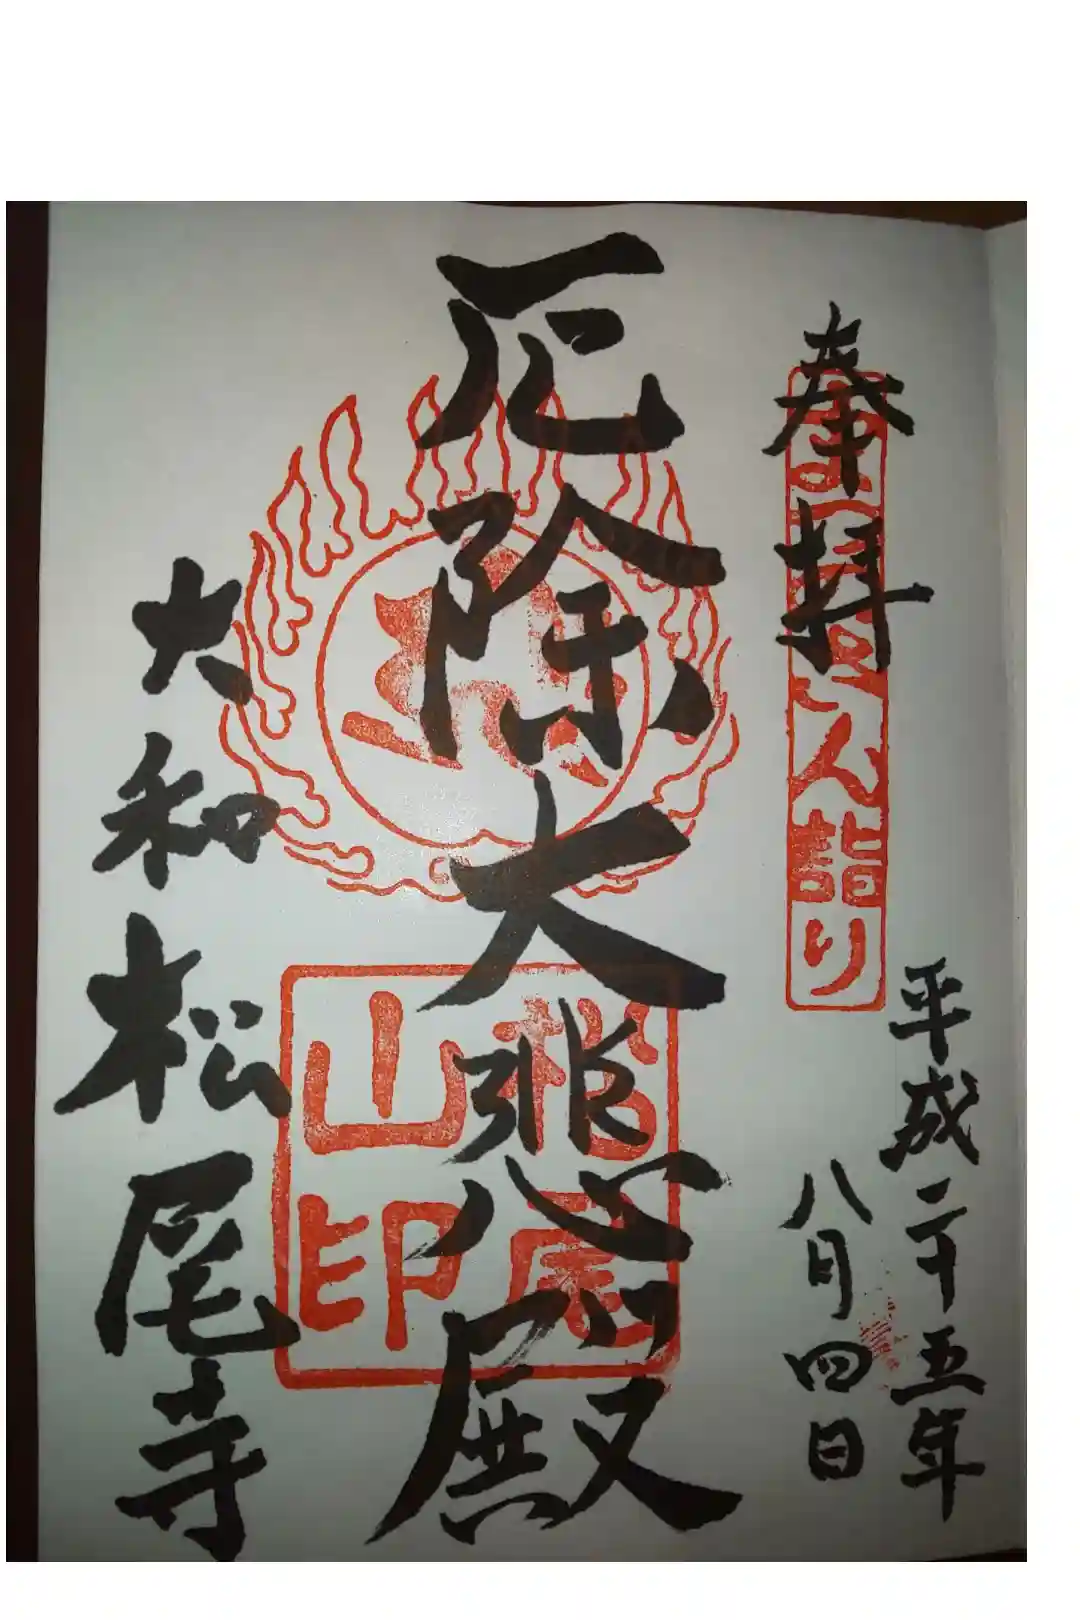 奉拝
まつのおさん詣り
平成二十五年
八月四日
厄除大悲殿
松尾山印
大和松尾寺